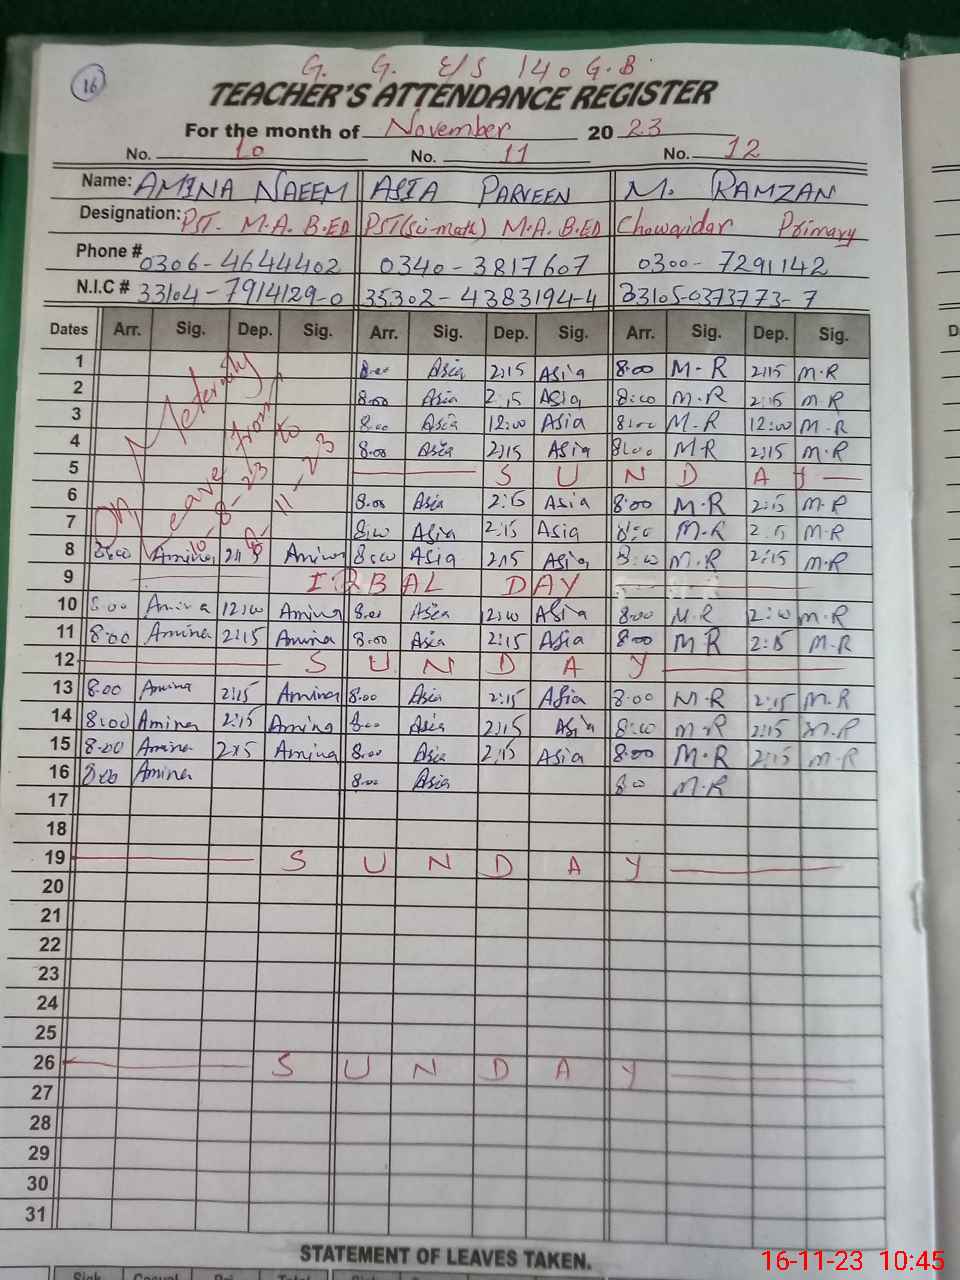 16
G. G. E/S 140 G.B
TEACHER'S ATTENDANCE REGISTER
For the month of November 2023
No. 10 No. 11 No. 12
Name: AMINA NAEEM ASIA PARVEEN M. RAMZAN
Designation: PST. M.A. B.ED PST(Sci-math) M.A. B.ED Chowqidar Primary
Phone # 0306-4644402 0340-3817607 0300-7291142
N.I.C # 33104-7914129-0 35302-4383194-4 33105-0373773-7
Dates Arr. Sig. Dep. Sig. Arr. Sig. Dep. Sig. Arr. Sig. Dep. Sig.
On Meternity leave from to
1 8:00 Asia 2:15 Asia 8:00 M-R 2:15 M.R
2 8:00 Asia 2:15 Asia 8:00 M.R 2:15 M.R
3 8:00 Asia 12:00 Asia 8:00 M.R 12:00 M-R
4 8:00 Asia 2:15 Asia 8:00 MR 2:15 M.R
5 SUNDAY
6 8:00 Asia Asia 8:00 M.R 2:15 M.R
7 8:00 Asia 2:15 Asia M.R M.R
8 8:00 Amina 2:15 Amina 8:00 Asia 2:15 Asia 8:00 M.R 2:15 M.R
9 IQBAL DAY
10 8:00 Amina 12:00 Amina 8:00 Asia 12:00 Asia 8:00 M.R M-R
11 8:00 Amina 2:15 Amina 8:00 Asia 2:15 Asia 8:00 MR 2:15 M.R
12 SUNDAY
13 8:00 Amina 2:15 Amina 8:00 Asia 2:15 Asia 8:00 M.R 2:15 M.R
14 8:00 Amina 2:15 Amina 8:00 Asia 2:15 Asia 8:00 M.R 2:15 M.R
15 8:00 Amina 2:15 Amina 8:00 Asia 2:15 Asia 8:00 M.R 2:15 M.R
16 8:00 Amina 8:00 Asia 8:00 M.R
17
18
19 SUNDAY
20
21
22
23
24
25
26 SUNDAY
27
28
29
30
31
STATEMENT OF LEAVES TAKEN.
16-11-23 10:45